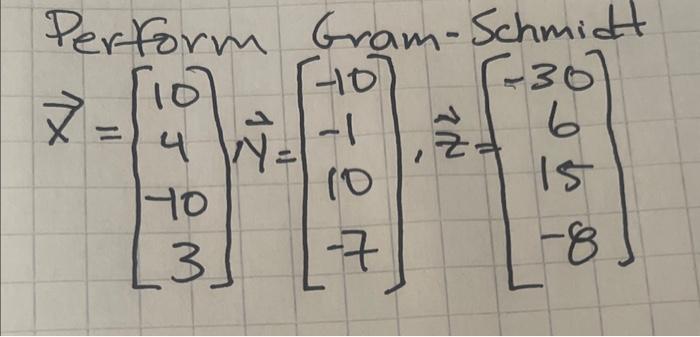 Perform Gram-Schmidt
x = [10 4 -10 3], y = [-10 -1 10 -7], z = [-30 6 15 -8]